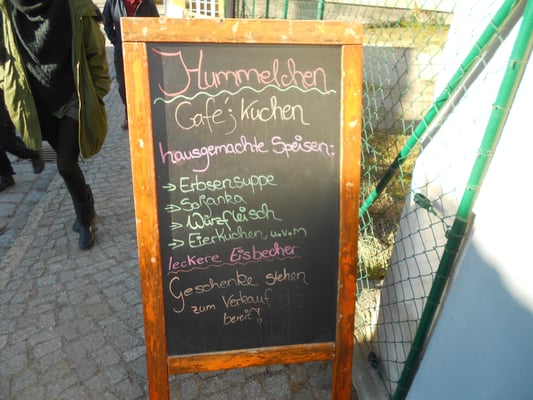 Hummelchen
Café; Kuchen
hausgemachte Speisen:
→ Erbsensuppe
→ Soljanka
→ Würzfleisch
→ Eierkuchen, u.v.m
leckere Eisbecher
Geschenke stehen
zum Verkauf
bereit!